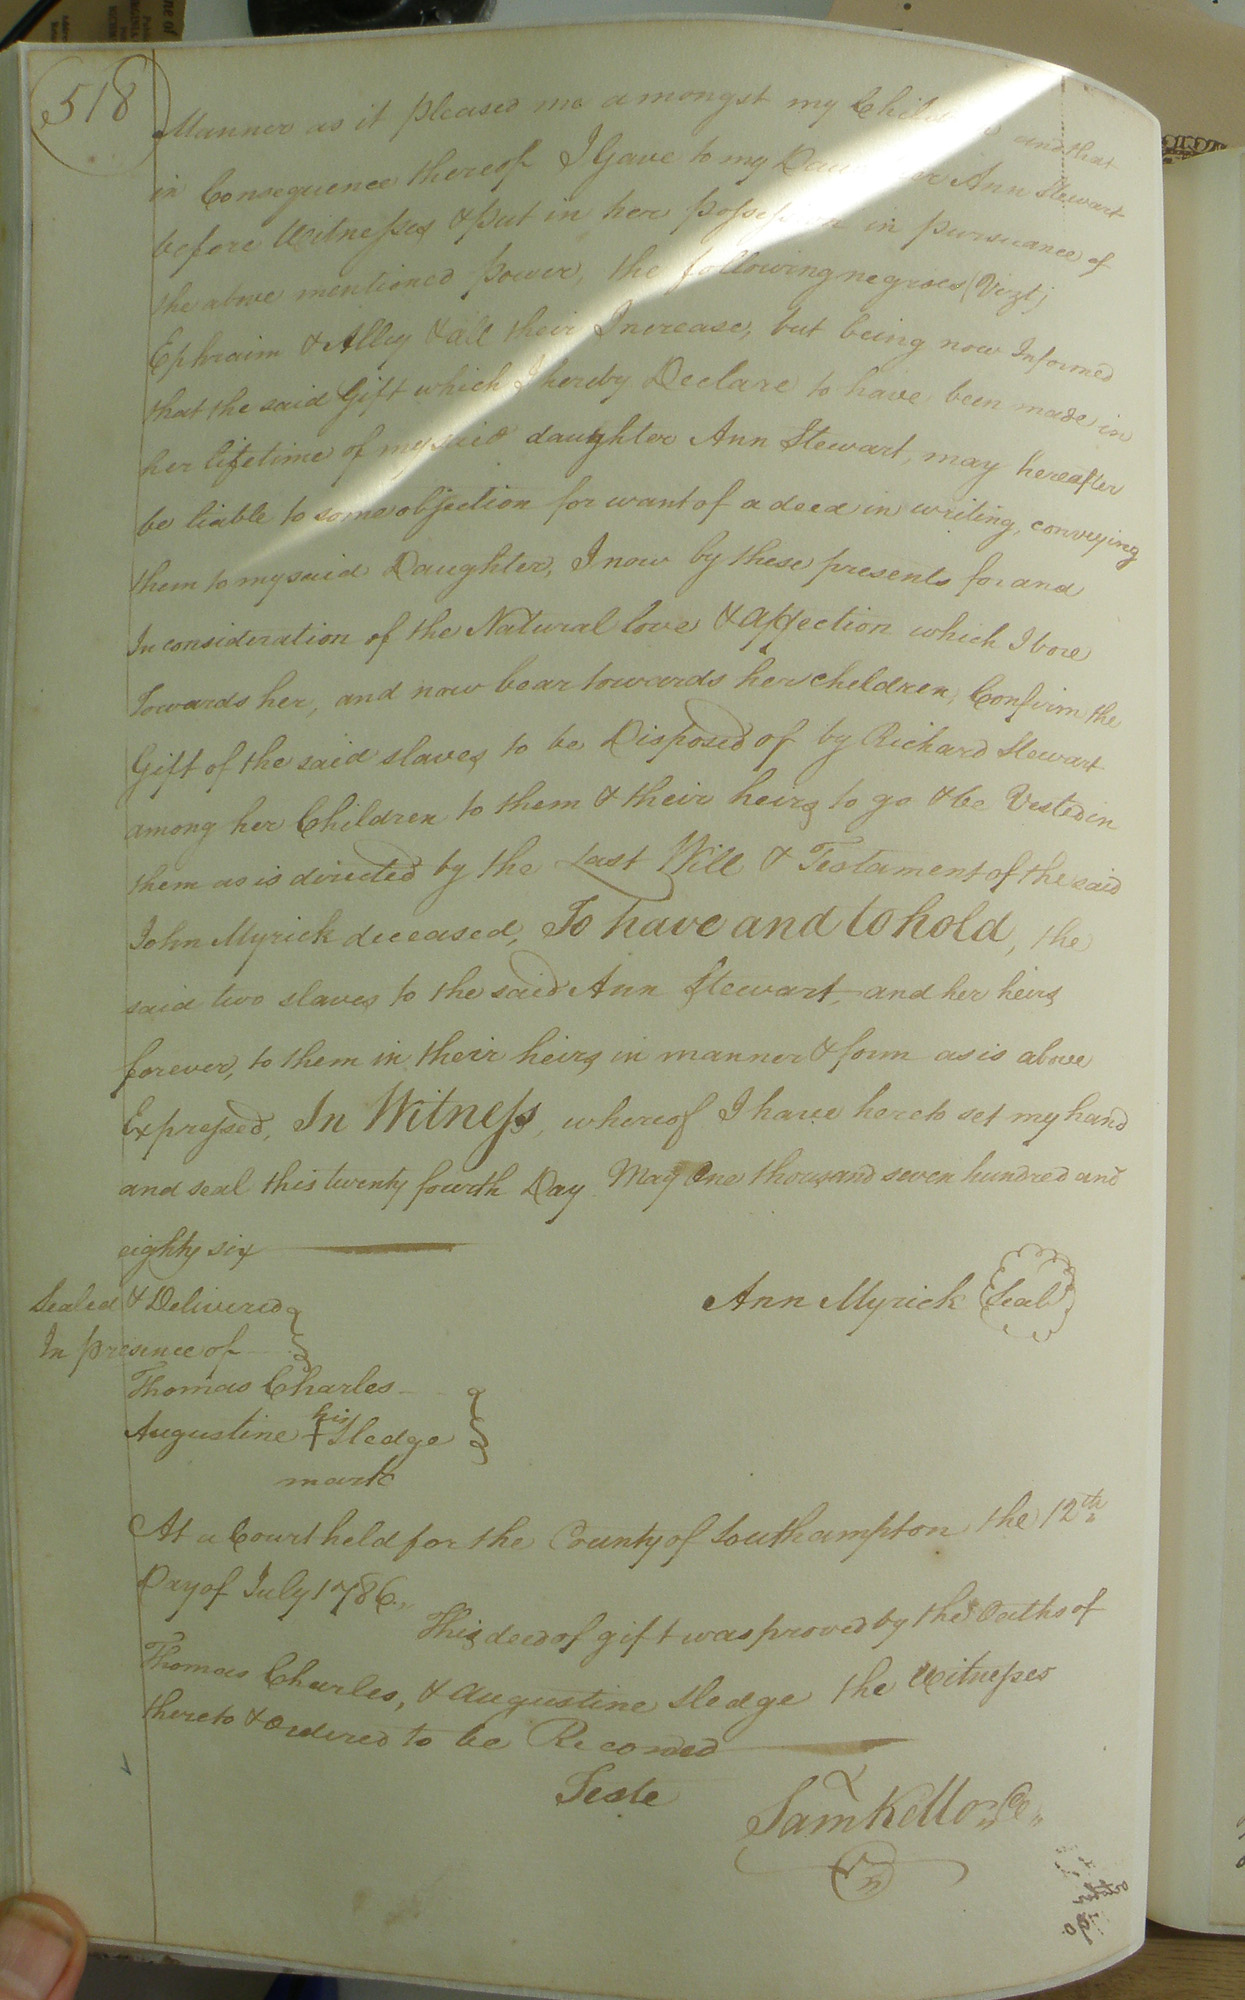 518
Manner as it pleased me amongst my and that
in Consequence thereof I Gave to my Ann Stewart
before Witnesses & put in her possession in pursuance of
the above mentioned power, the following negroes (Vizt)
Ephraim & Alley & all their Increase, but being now Informed
that the said Gift which I hereby Declare to have been made in
her lifetime of my said daughter Ann Stewart, may hereafter
be liable to some objection for want of a deed in writing, conveying
them to my said Daughter, I now by these presents for and
In consideration of the Natural love & affection which I bore
Towards her, and now bear towards her children, Confirm the
Gift of the said slaves to be Disposed of by Richard Stewart
among her Children to them & their heirs to go & be Vested in
them as is directed by the Last Will & Testament of the said
John Myrick deceased, To have and to hold, the
said two slaves to the said Ann Stewart, and her heirs
forever, to them in their heirs in manner & form as is above
Expressed, In Witness, whereof I have hereto set my hand
and seal this twenty fourth Day May One thousand seven hundred and
eighty six
Sealed & Delivered
Ann Myrick Seal
In presence of
Thomas Charles
Augustine his + Sledge
mark
At a Court held for the County of Southampton the 12th
Day of July 1786
This deed of gift was proved by the Oaths of
Thomas Charles, & Augustine Sledge the Witnesses
thereto & Ordered to be Recorded
Teste
Saml Kello